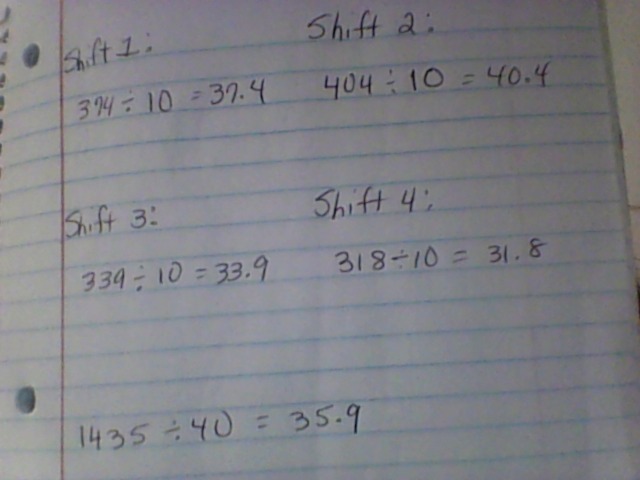 Shift 1: Shift 2:
374 ÷ 10 = 37.4 404 ÷ 10 = 40.4
Shift 3: Shift 4:
339 ÷ 10 = 33.9 318 ÷ 10 = 31.8
1435 ÷ 40 = 35.9